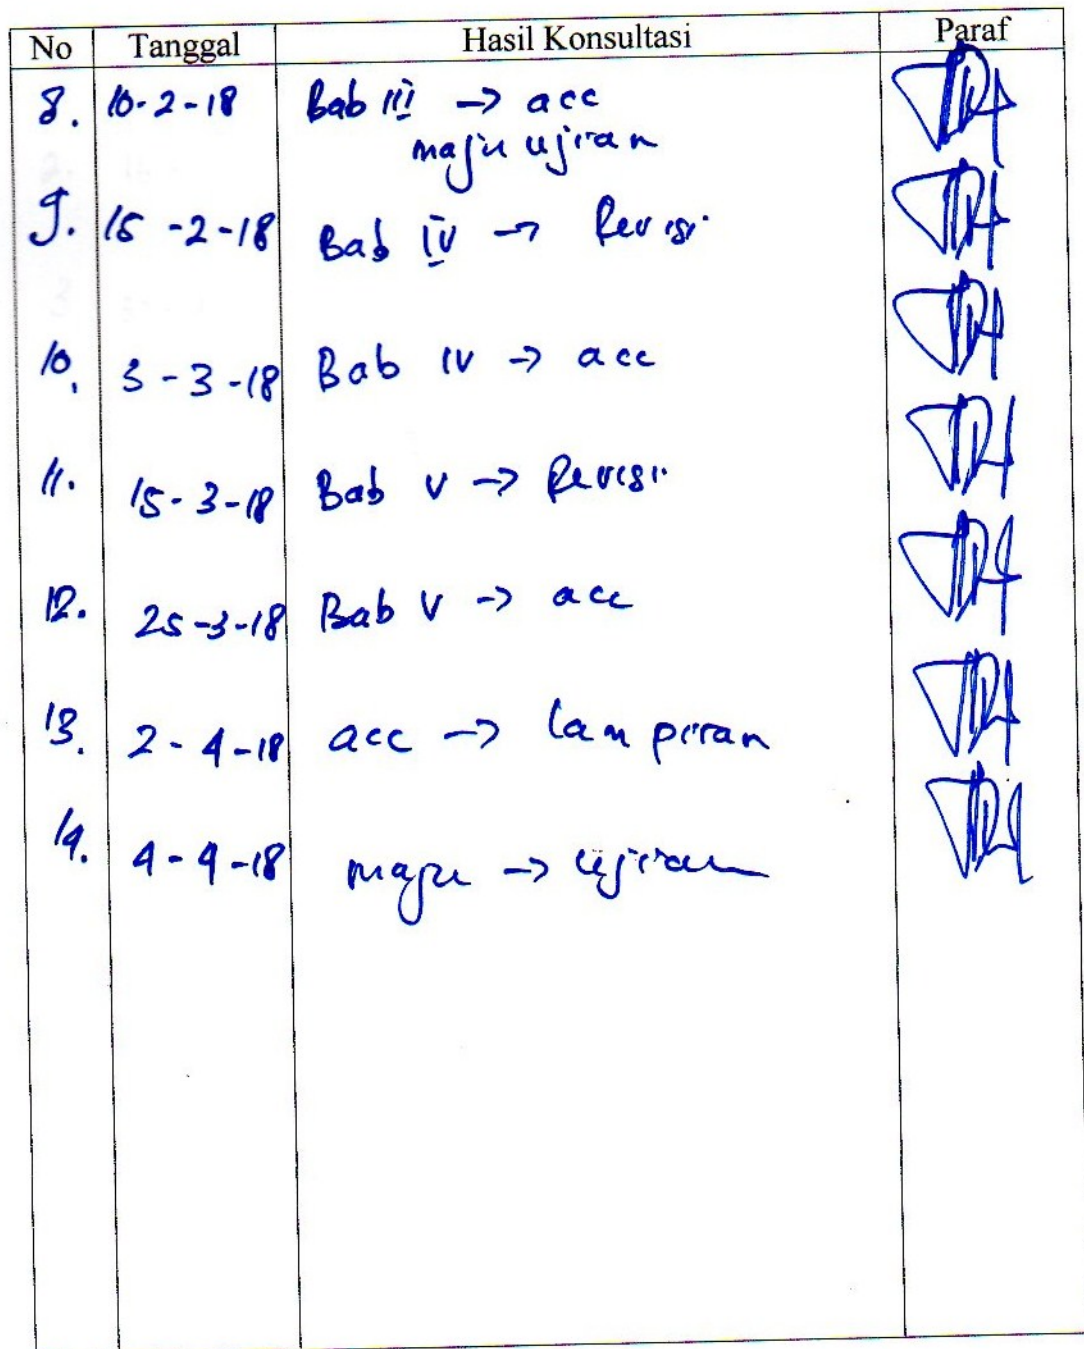 No Tanggal Hasil Konsultasi Paraf
8. 10-2-18 Bab III → acc
maju ujian
9. 15-2-18 Bab IV → Revisi
10. 3-3-18 Bab IV → acc
11. 15-3-18 Bab V → Revisi
12. 25-3-18 Bab V → acc
13. 2-4-18 acc → lampiran
14. 4-4-18 maju → ujian